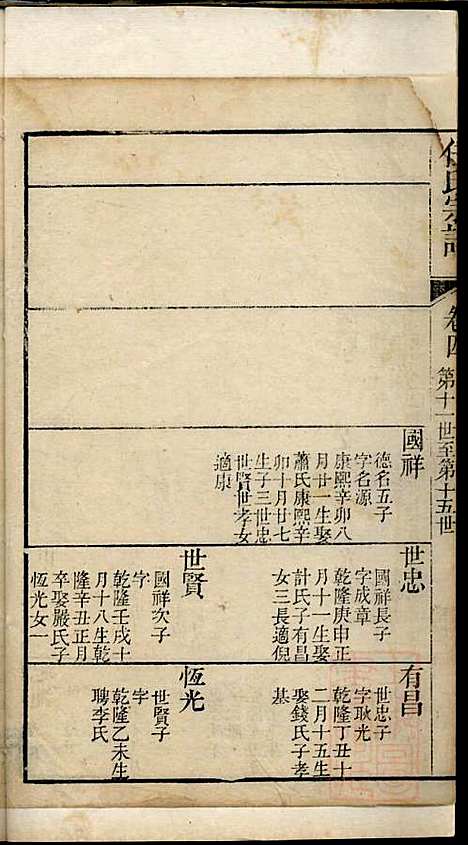 氏宗譜
卷四
第十一世至第十五世
國祥
德名五子
字名源
康熙辛卯八
月廿一生娶
蕭氏康熙辛
卯十月廿七
生子三世忠
世賢世孝女
適康
世忠
國祥長子
字成章
乾隆庚申正
月十一生娶
計氏子有昌
女三長適倪
世賢
國祥次子
字
乾隆壬戌十
月十八生乾
隆辛丑正月
卒娶嚴氏子
恆光女一
有昌
世忠子
字耿光
乾隆丁丑十
二月十五生
娶錢氏子孝
基
恆光
世賢子
字
乾隆乙未生
聘李氏